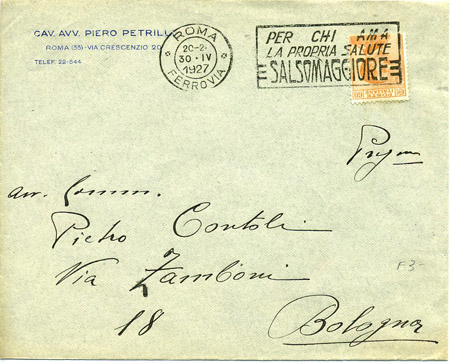 CAV. AVV. PIERO PETRILLI
ROMA (35) - VIA CRESCENZIO 20
TELEF. 22-544
ROMA
20-21
30·IV
1927
FERROVIA
PER CHI AMA
LA PROPRIA SALUTE
SALSOMAGGIORE
avv. Comm.
Pietro Contoli
Via Zamboni
18
Bologna
F3-